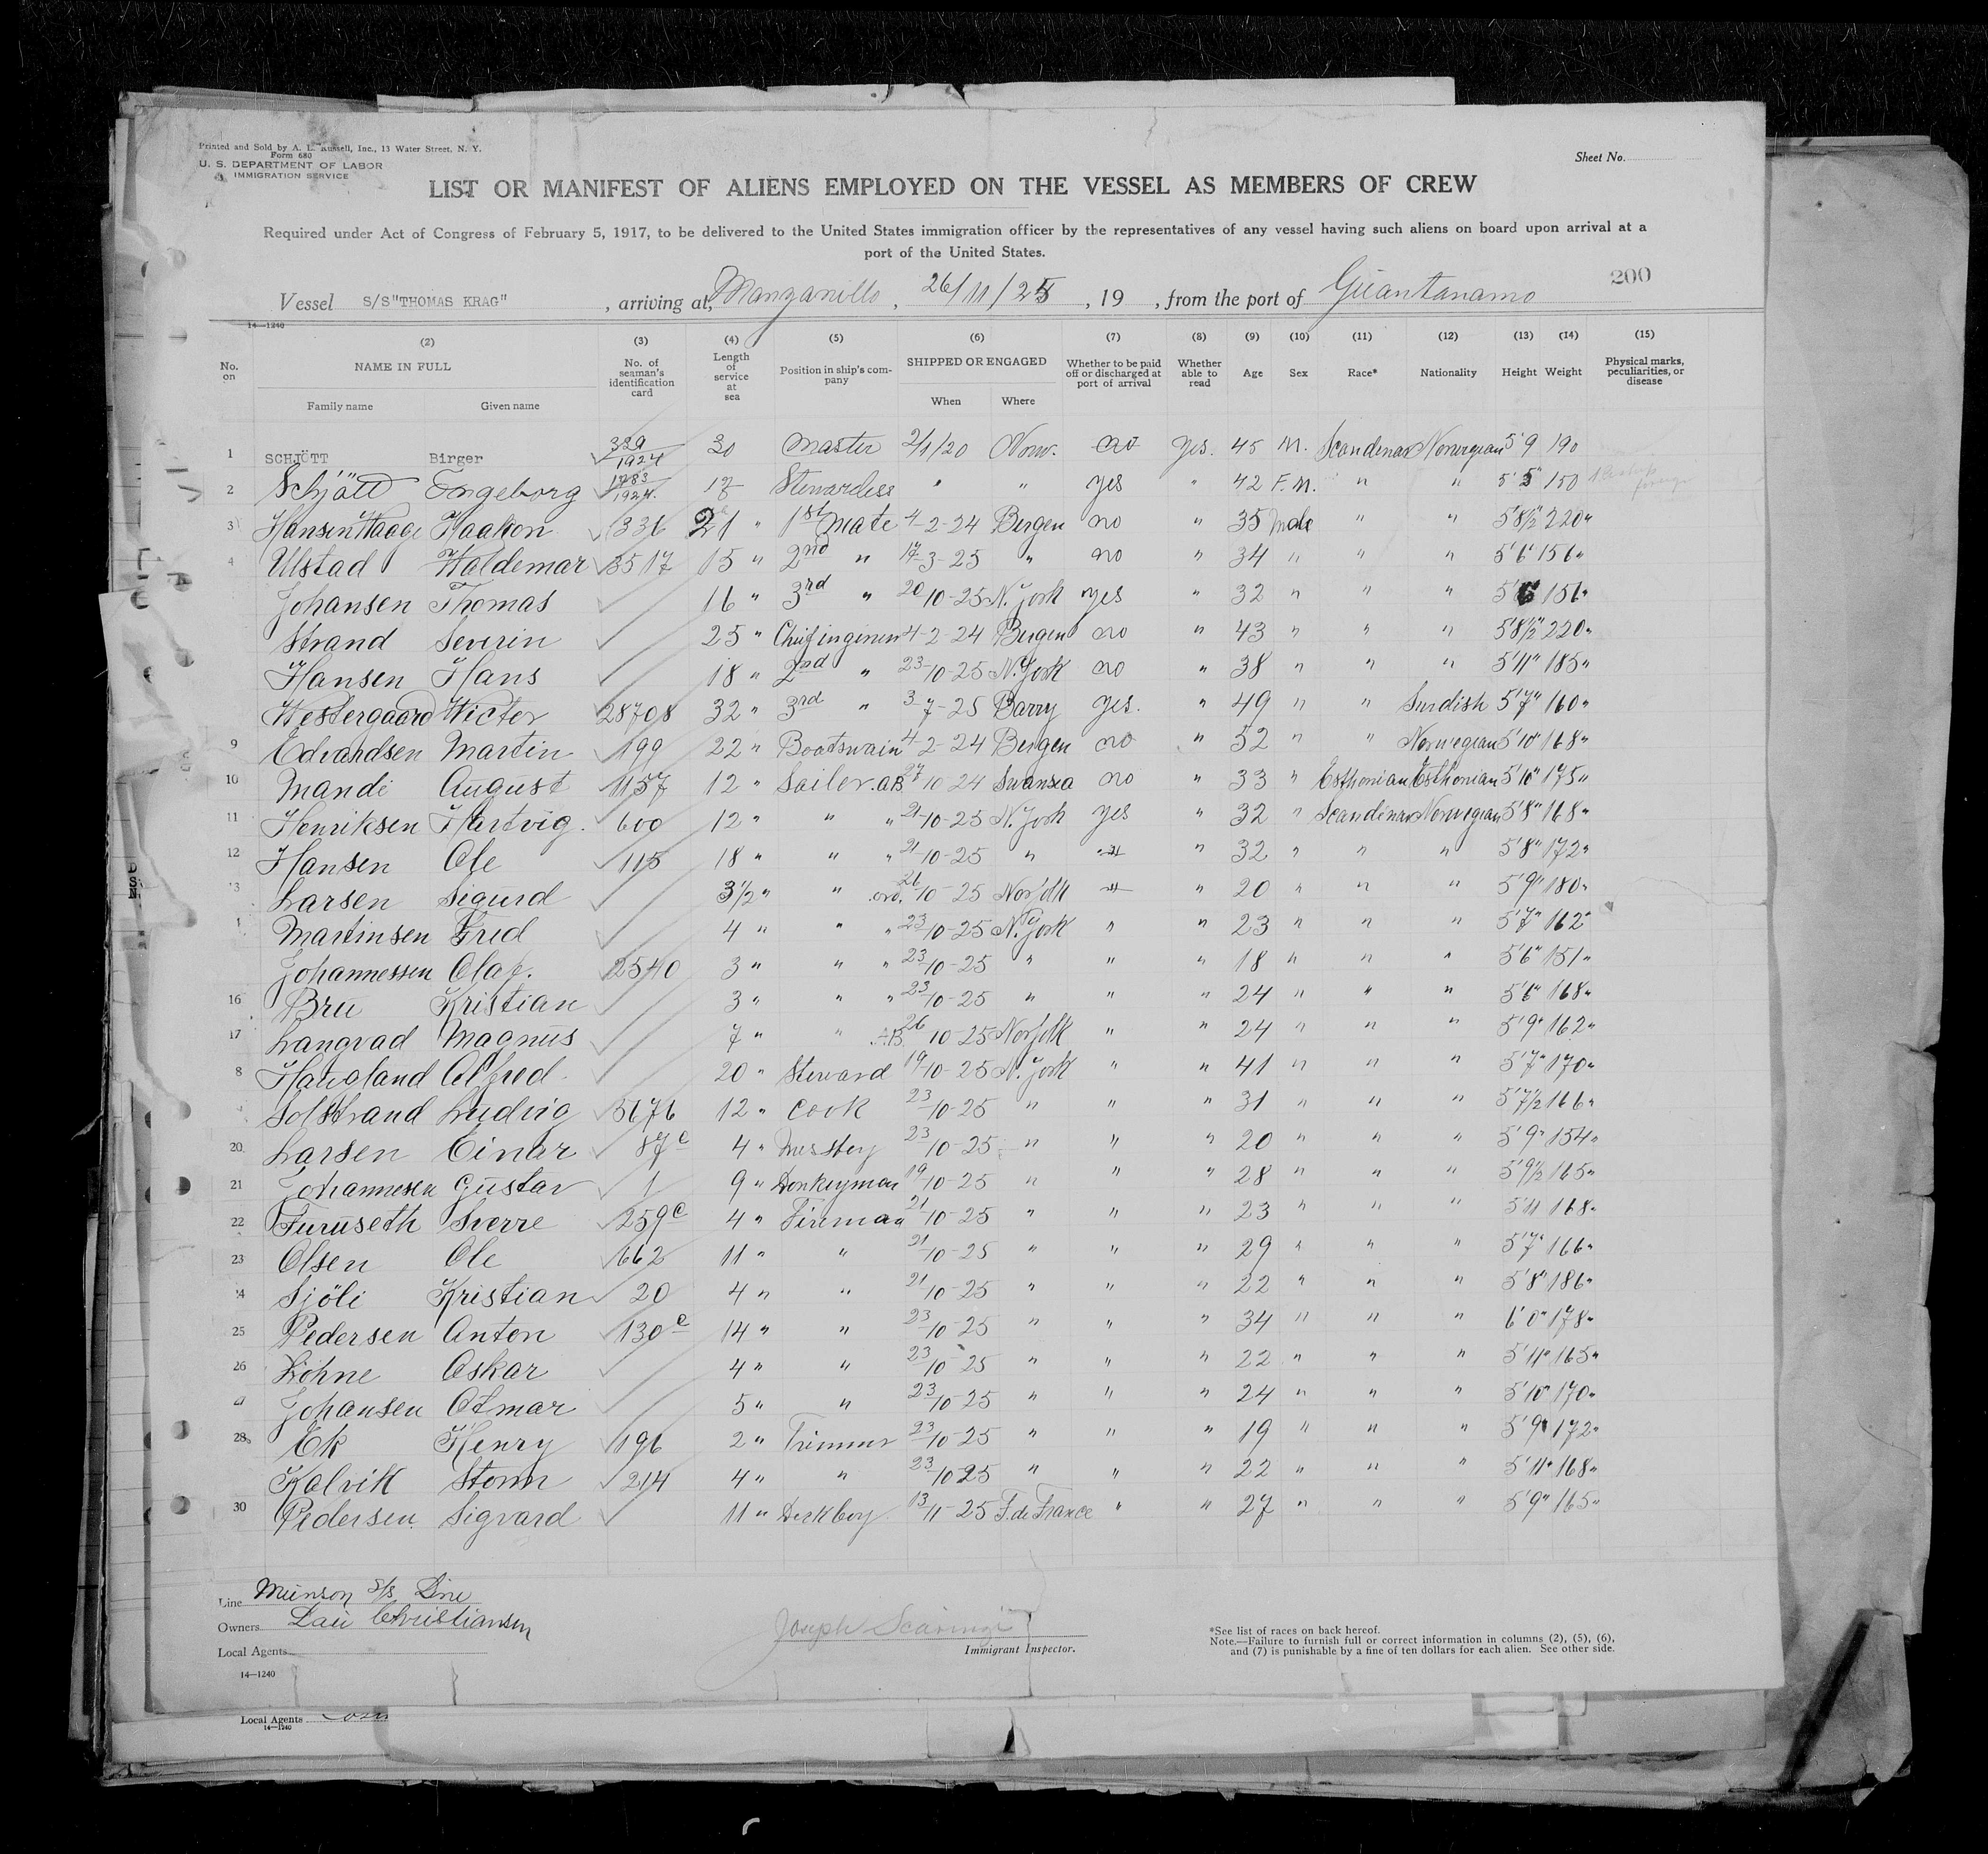 Printed and Sold by A. L. Russell, Inc., 13 Water Street, N. Y.
Form 680
U. S. DEPARTMENT OF LABOR
IMMIGRATION SERVICE
Sheet No.
LIST OR MANIFEST OF ALIENS EMPLOYED ON THE VESSEL AS MEMBERS OF CREW
Required under Act of Congress of February 5, 1917, to be delivered to the United States immigration officer by the representatives of any vessel having such aliens on board upon arrival at a
port of the United States.
200
Vessel S/S "THOMAS KRAG", arriving at, Manzanillo, 26/11/25, 19 , from the port of Guantanamo
14—1240
No. on (2) NAME IN FULL Family name Given name (3) No. of seaman's identification card (4) Length of service at sea (5) Position in ship's company (6) SHIPPED OR ENGAGED When Where (7) Whether to be paid off or discharged at port of arrival (8) Whether able to read (9) Age (10) Sex (11) Race* (12) Nationality (13) Height (14) Weight (15) Physical marks, peculiarities, or disease
1 SCHJÖTT Birger 329/1924 30 Master 2/1/20 Norw. no yes. 45 M. Scandinav Norwegian 5'9 190
2 Schjött Ingeborg 1783/1924. 17 Stewardess " " yes " 42 F. M. " " 5'5" 150
3 Hansen Haage Haakon 336 21 " 1st Mate 4-2-24 Bergen no " 35 Male " " 5'8½" 220"
4 Ulstad Waldemar 3517 15 " 2nd " 17-3-25 " no " 34 " " " 5'6" 156"
Johansen Thomas 16 " 3rd " 20/10-25 N. York yes " 32 " " " 5'6 156"
Strand Severin 25 " Chief inginen 4-2-24 Bergen no " 43 " " " 5'8½" 220"
Hansen Hans 18 " 2nd " 23-10-25 N. York no " 38 " " " 5'11" 185"
Westergaard Wictor 28708 32 " 3rd " 3-7-25 Barry yes. " 49 " " Swedish 5'7" 160"
9 Edvardsen Martin 199 22 " Boatswain 4-2-24 Bergen no " 52 " " Norwegian 5'10" 168"
10 Mandi August 1157 12 " Sailor. AB. 27/10 24 Swansea no " 33 " Esthonian Esthonian 5'10" 175"
11 Henriksen Hartvig. 600 12 " " " 21-10-25 N. York yes " 32 " Scandinav Norwegian 5'8" 168"
12 Hansen Ole 115 18 " " " 21-10-25 " " " 32 " " " 5'8" 172"
13 Larsen Sigurd 3½ " " ord. 26/10-25 Norfolk " " 20 " " " 5'9" 180"
Martinsen Fred 4 " " " 23/10-25 N. York " " 23 " " " 5'7" 162"
Johannessen Olaf. 2540 3 " " " 23/10-25 " " " 18 " " " 5'6" 151"
16 Bru Kristian 3 " " " 23/10-25 " " " 24 " " " 5'6" 168"
17 Langvad Magnus 7 " " A.B. 26 10-25 Norfolk " " 24 " " " 5'9" 162"
8 Haugland Alfred. 20 " Steward 19/10-25 N. York " " 41 " " " 5'7" 170"
Solstrand Ludvig 5676 12 " Cook 23/10-25 " " " 31 " " " 5'7½ 166"
20 Larsen Einar 87c 4 " Messboy 23/10-25 " " " 20 " " " 5'9" 154"
21 Johannesen Gustav 1 9 " Donkeyman 19/10-25 " " " 28 " " " 5'9½ 165"
22 Furuseth Sverre 259c 4 " Fireman 21/10-25 " " " 23 " " " 5'11 168"
23 Olsen Ole 662 11 " " 21/10-25 " " " 29 " " " 5'7" 166"
24 Sjöli Kristian 20 4 " " 21/10-25 " " " 22 " " " 5'8" 186"
25 Pedersen Anton 130c 14 " " 23/10-25 " " " 34 " " " 6'0" 178"
26 Löhne Oskar 4 " " 23/10-25 " " " 22 " " " 5'11" 165"
Johansen Otmar 5 " " 23/10-25 " " " 24 " " " 5'10" 170"
28 Ek Henry 196 2 " Trimmer 23/10-25 " " " 19 " " " 5'9" 172"
Kalvik Storm 214 4 " " 23/10 25 " " " 22 " " " 5'11" 168"
30 Pedersen Sigvard 11 " Deckboy 13/11-25 F. de France " " 27 " " " 5'9" 165"
Line Munson S/s Line
Owners Lau Christiansen
Local Agents
14—1240
Joseph
Immigrant Inspector.
*See list of races on back hereof.
Note.—Failure to furnish full or correct information in columns (2), (5), (6),
and (7) is punishable by a fine of ten dollars for each alien. See other side.
Local Agents
14—1240